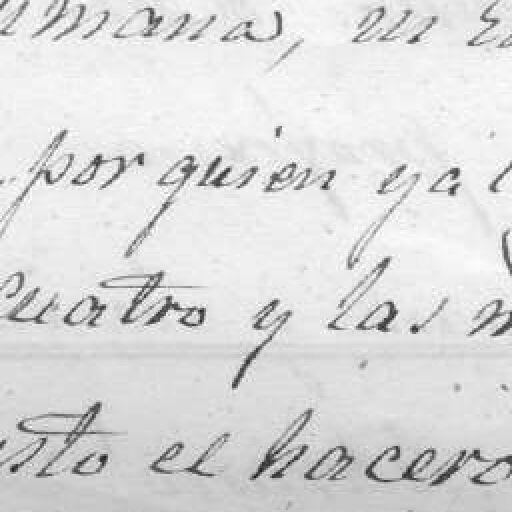 umana, en
por quien ya
Cuatro y las
sto el hacero